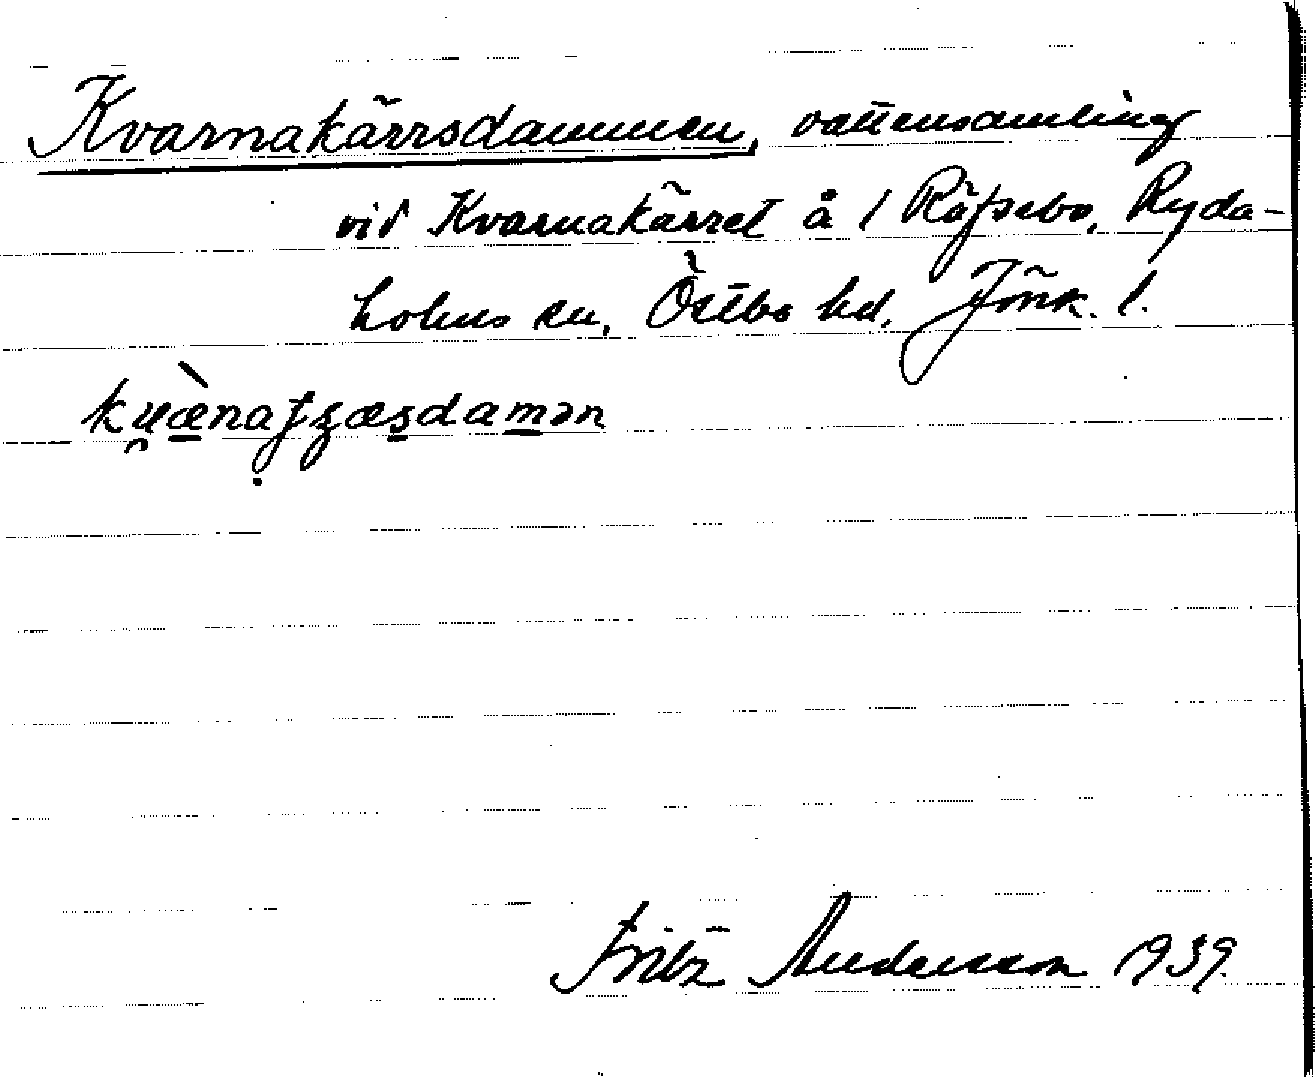 Kvarnakärrsdammen, vattensamling
vid Kvarnakärret å / Råpsebo, Ryda-
holms sn, Östbo hd, Jönk. l.
Fritz Andersson 1939.